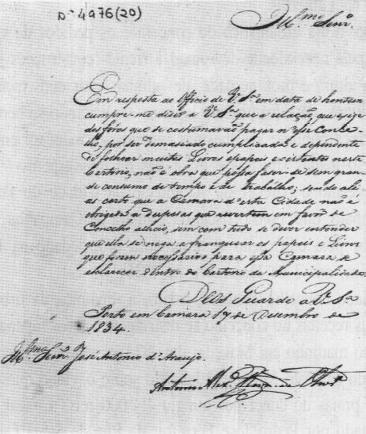 Dº 4976(20)
Illmo. Senr.
Em resposta ao Officio de V. Sa. em data de hontem
cumpre-me dizer a V. Sa. que a relação, que exige
dos fóros que se costumavão pagar a esse Conce-
lho, por ser demasiado complicada e dependente
de folhear muitos Livros e papeis existentes neste
Cartorio, não é obra que possa fazer-se sem gran-
de consumo de tempo e de trabalho; sendo ali-
as certo que a Camara d'esta Cidade não é
obrigada a despesas que revertem em favor de
Concelho alheio, sem com tudo se dever entender
que ella se nega a franquear os papeis e Livros
que forem necessarios para essa Camara se
esclarecer dentro do Cartorio da Municipalidade.
Deos Guarde a V. Sa.
Porto em Camara 17 de Dezembro de
1834.
Illmo. Senr. José Antonio d'Araujo.
Antonio